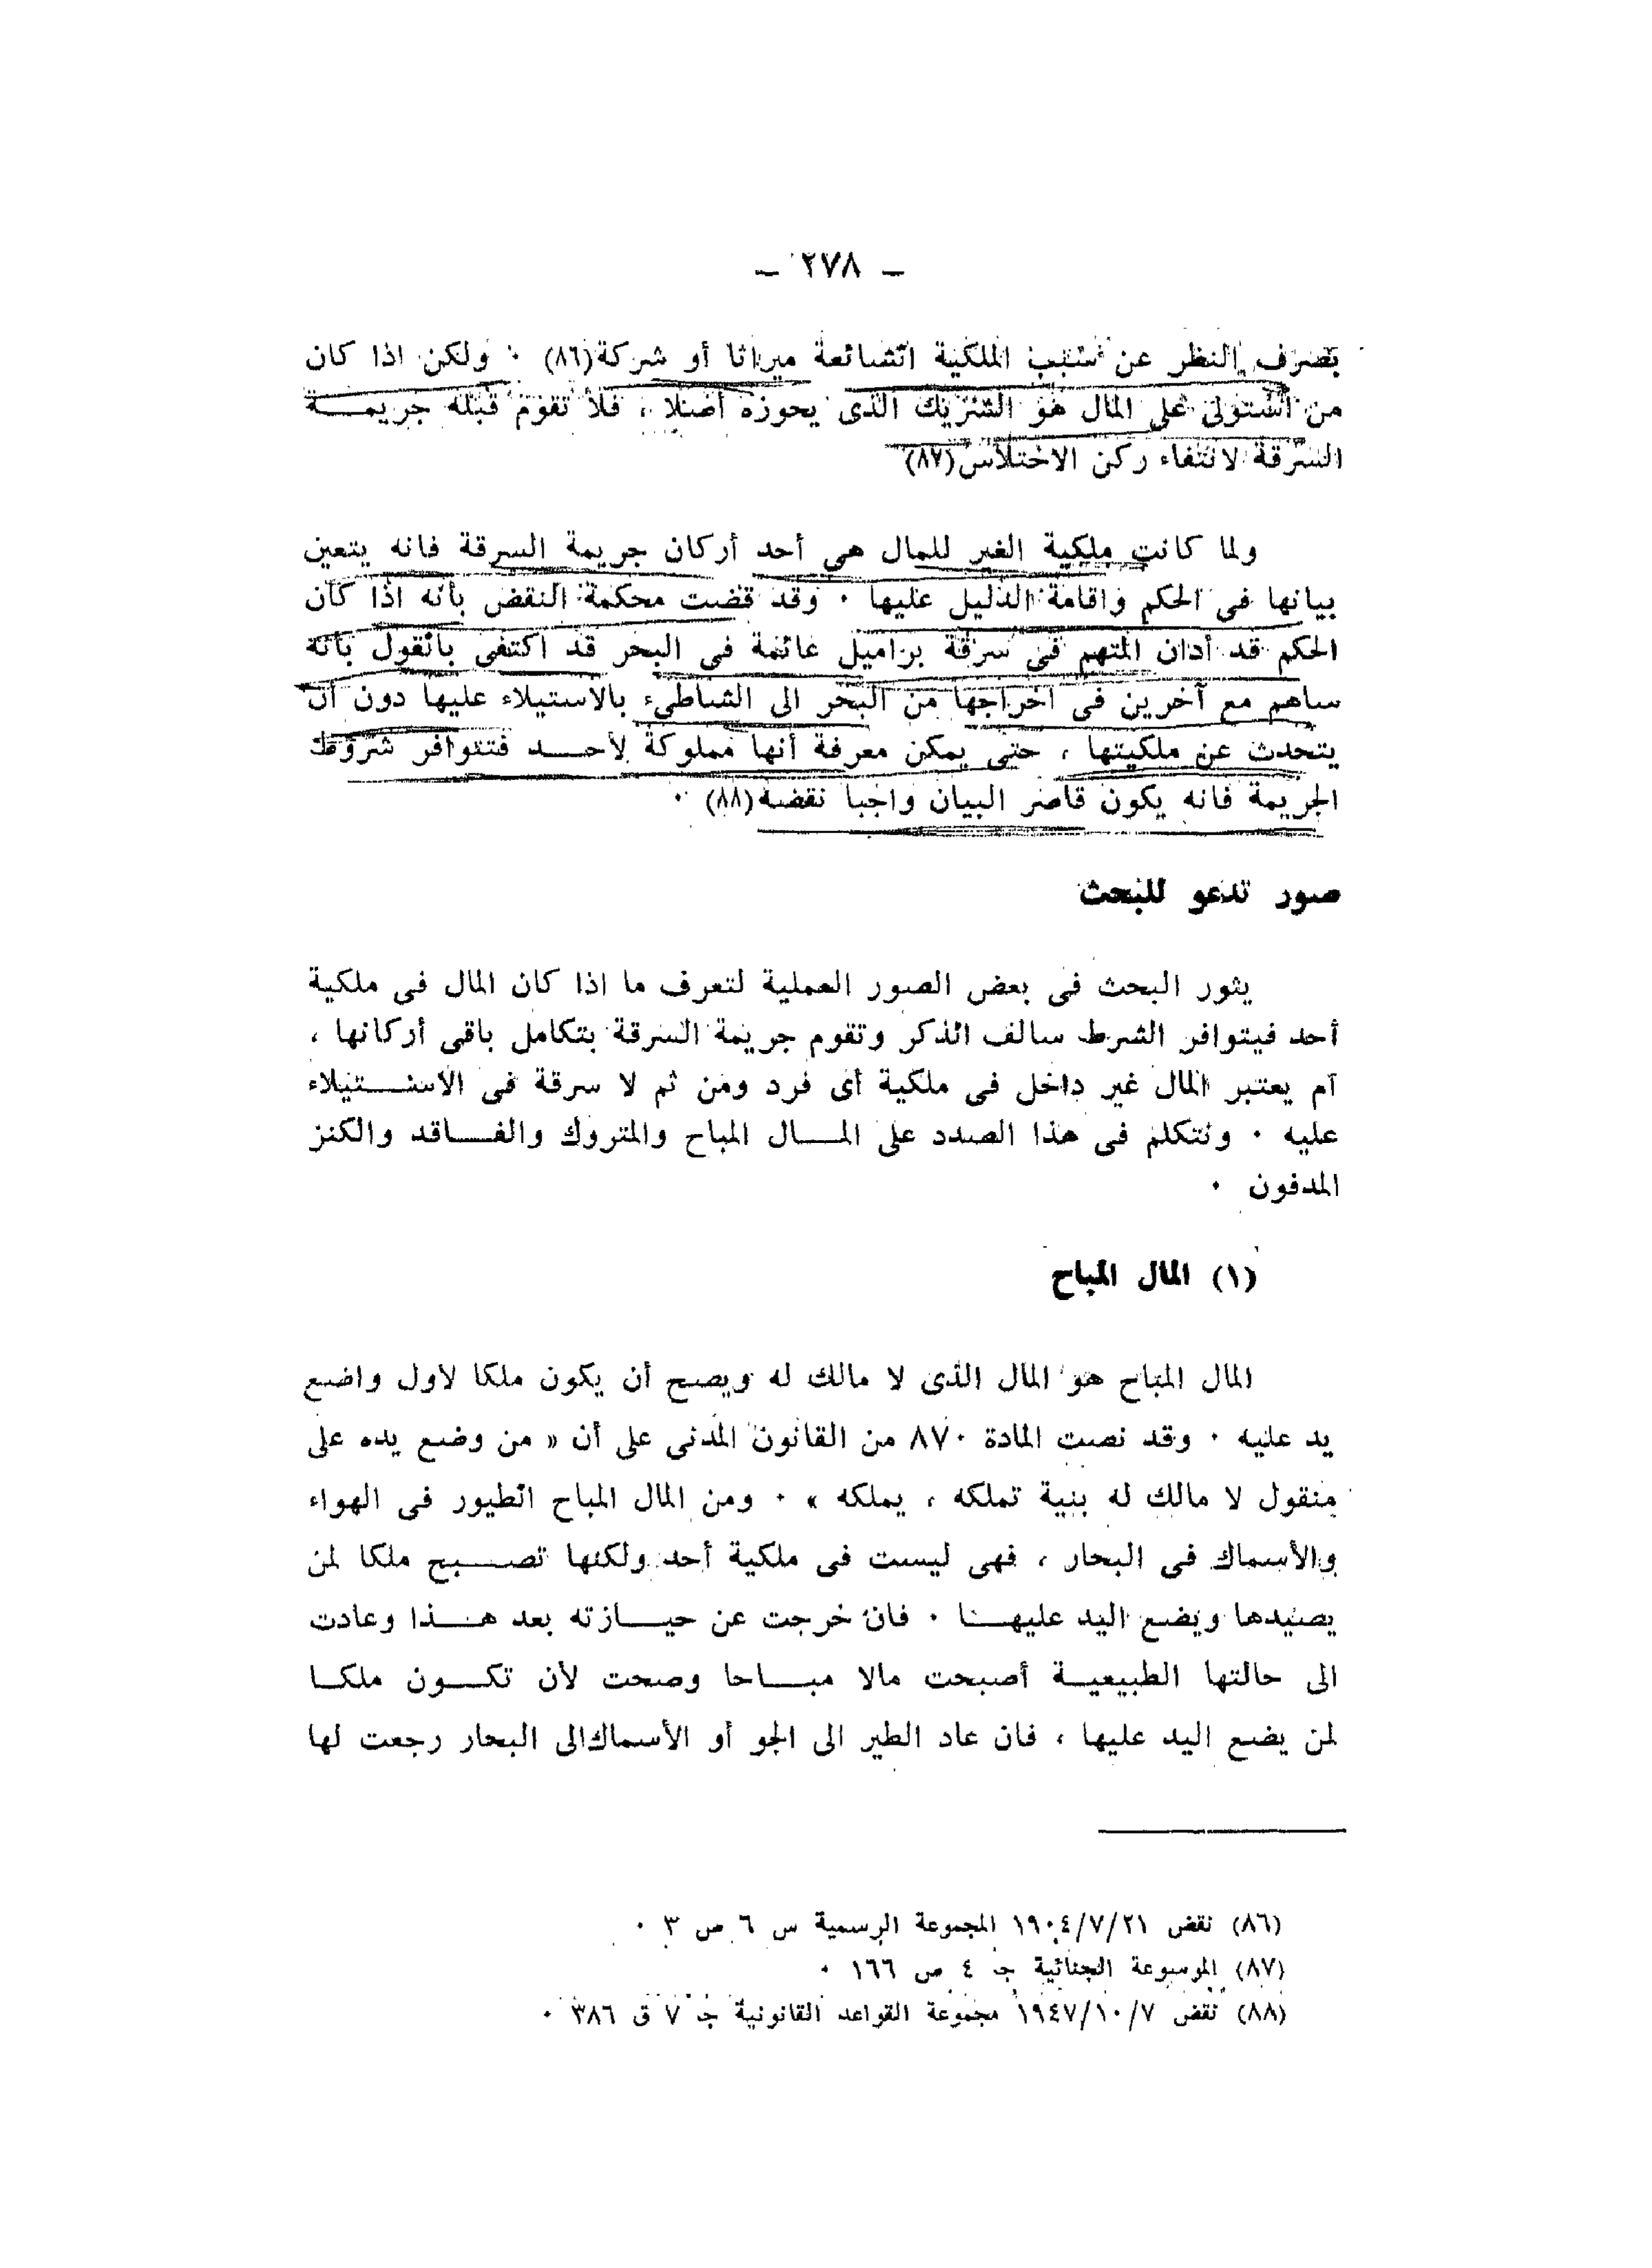 — ٢٧٨ —
بصرف النظر عن سبب الملكية الشائعة ميراثا أو شركة(٨٦) ٠ ولكن اذا كان
من استولى على المال هو الشريك الذى يحوزه أصلا ، فلا تقوم قبله جريمــة
السرقة لانتفاء ركن الاختلاس(٨٧)
ولما كانت ملكية الغير للمال هى أحد أركان جريمة السرقة فانه يتعين
بيانها فى الحكم واقامة الدليل عليها ٠ وقد قضت محكمة النقض بأنه اذا كان
الحكم قد أدان المتهم فى سرقة براميل عائمة فى البحر قد اكتفى بالقول بأنه
ساهم مع آخرين فى اخراجها من البحر الى الشاطىء بالاستيلاء عليها دون أن
يتحدث عن ملكيتها ، حتى يمكن معرفة أنها مملوكة لأحــد فتتوافر شروط
الجريمة فانه يكون قاصر البيان واجبا نقضه(٨٨) ٠
صور تدعو للبحث
يثور البحث فى بعض الصور العملية لتعرف ما اذا كان المال فى ملكية
أحد فيتوافر الشرط سالف الذكر وتقوم جريمة السرقة بتكامل باقى أركانها ،
أم يعتبر المال غير داخل فى ملكية أى فرد ومن ثم لا سرقة فى الاستــيلاء
عليه ٠ ونتكلم فى هذا الصدد على المــال المباح والمتروك والفــاقد والكنز
المدفون ٠
(١) المال المباح
المال المباح هو المال الذى لا مالك له ويصح أن يكون ملكا لاول واضع
يد عليه ٠ وقد نصت المادة ٨٧٠ من القانون المدنى على أن « من وضع يده على
منقول لا مالك له بنية تملكه ، يملكه » ٠ ومن المال المباح الطيور فى الهواء
والأسماك فى البحار ، فهى ليست فى ملكية أحد ولكنها تصــبح ملكا لمن
يصيدها ويضع اليد عليهــا ٠ فان خرجت عن حيــازته بعد هــذا وعادت
الى حالتها الطبيعيــة أصبحت مالا مبــاحا وصحت لأن تكــون ملكــا
لمن يضع اليد عليها ، فان عاد الطير الى الجو أو الأسماك الى البحار رجعت لها
(٨٦) نقض ١٩٠٤/٧/٢١ المجموعة الرسمية س ٦ ص ٣ ٠
(٨٧) الموسوعة الجنائية جـ ٤ ص ١٦٦ ٠
(٨٨) نقض ١٩٤٧/١٠/٧ مجموعة القواعد القانونية جـ ٧ ق ٣٨٦ ٠